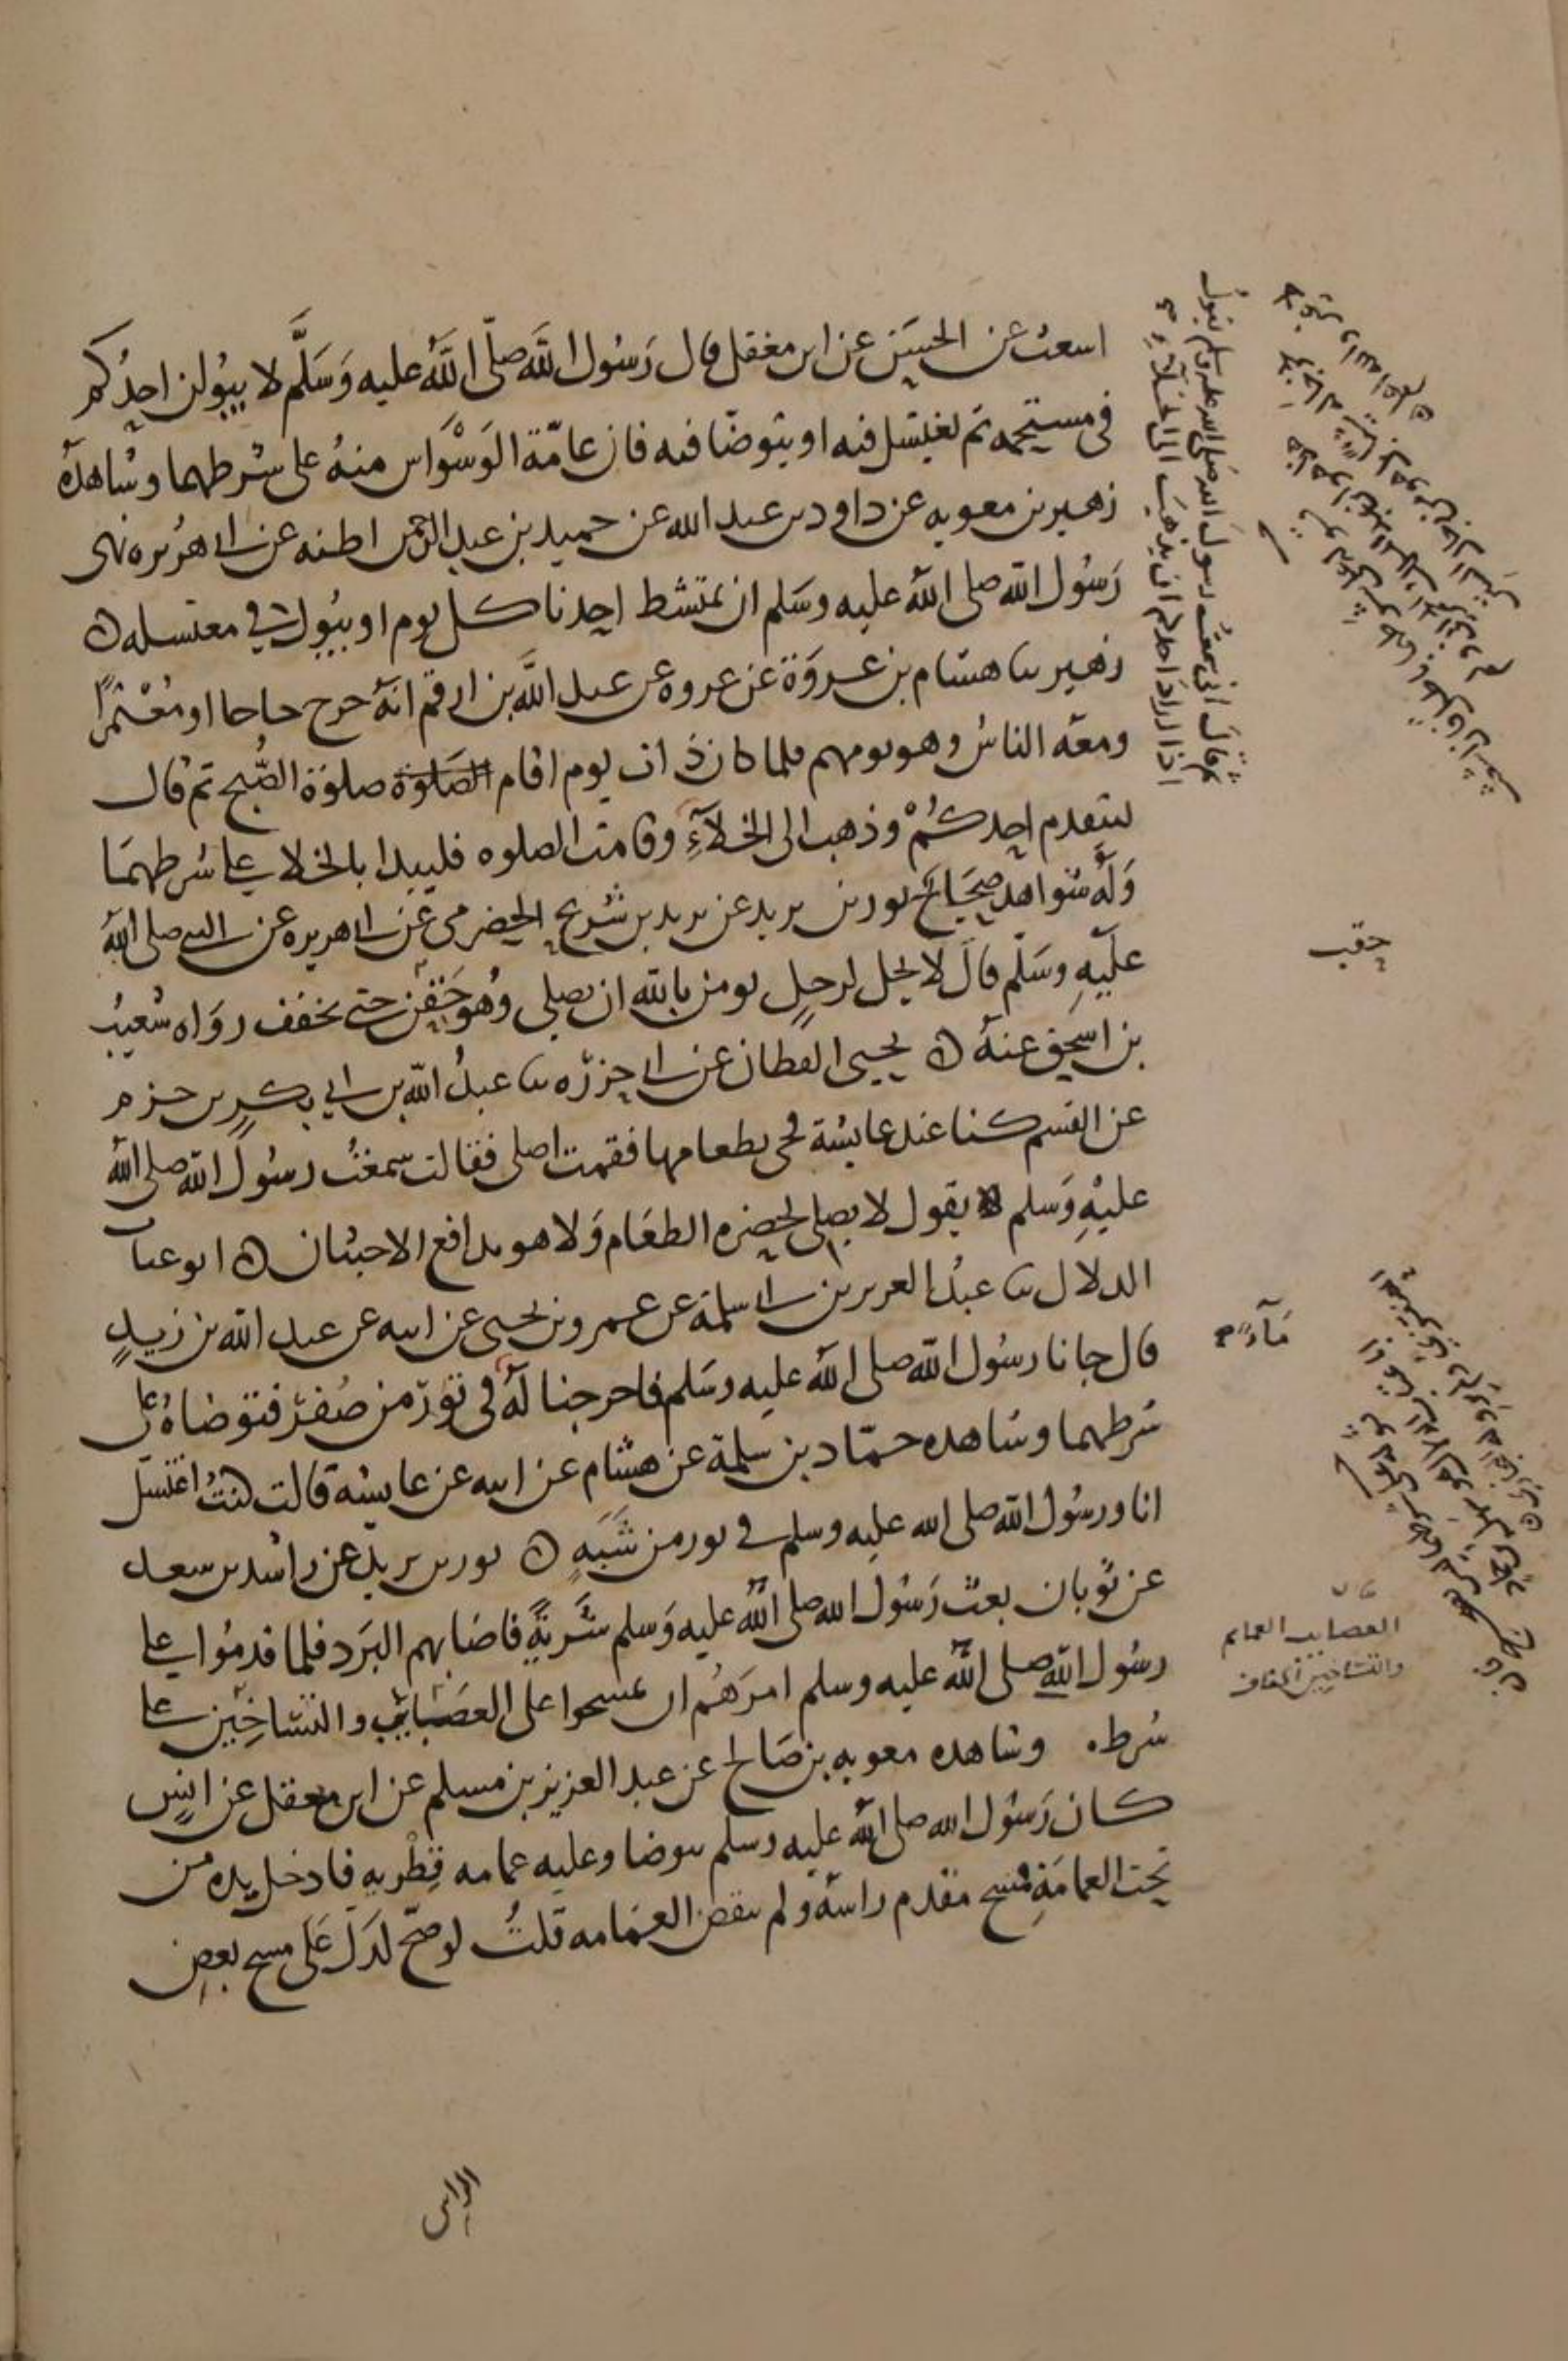 اسعث عن الحسن عن ابن مغفل قال رسول الله صلى الله عليه وسلم لا يبولن احدكم
في مستحمه ثم يغتسل فيه او يتوضا فيه فان عامة الوسواس منه على شرطهما وشاهده
زهير بن معويه عن داود بن عبد الله عن حميد بن عبد الرحمن اظنه عن ابي هريره نهى
رسول الله صلى الله عليه وسلم ان يمتشط احدنا كل يوم او يبول في مغتسله
زهير ثنا هشام بن عروة عن عروه عن عبد الله بن ارقم انه خرج حاجا او معتمرا
ومعه الناس وهو يومهم فلما كان ذات يوم اقام الصلوة صلوة الصبح ثم قال
ليتقدم احدكم وذهب الى الخلاء وقامت الصلوه فليبدا بالخلا على شرطهما
وله شواهد صحاح ثور بن يزيد عن يزيد بن شريح الحضرمي عن ابي هريره عن النبي صلى الله
عليه وسلم قال لا يحل لرجل يومن بالله ان يصلي وهو حقن حتى يخفف رواه شعيب
بن اسحق عنه يحيى القطان عن ابي حزره ثنا عبد الله بن ابي بكر بن حزم
عن القسم كنا عند عايشة فجي بطعامها فقمت اصلي فقالت سمعت رسول الله صلى الله
عليه وسلم يقول لا يصلي بحضره الطعام ولا هو يدافع الاخبثان ابو عتاب
الدلال ثنا عبد العزيز بن ابي سلمة عن عمرو بن يحيى عن ابيه عن عبد الله بن زيد
قال جانا رسول الله صلى الله عليه وسلم فاخرجنا له في تور من صفر فتوضا على
شرطهما وشاهده حماد بن سلمة عن هشام عن ابيه عن عايشه قالت كنت اغتسل
انا ورسول الله صلى الله عليه وسلم في تور من شبه ثور بن يزيد عن راشد بن سعد
عن ثوبان بعث رسول الله صلى الله عليه وسلم سرية فاصابهم البرد فلما قدموا على
رسول الله صلى الله عليه وسلم امرهم ان يمسحوا على العصايب والتساخين على
شرط م وشاهده معويه بن صالح عن عبد العزيز بن مسلم عن ابن معقل عن انس
كان رسول الله صلى الله عليه وسلم يتوضا وعليه عمامه قطريه فادخل يده من
تحت العمامة فمسح مقدم راسه ولم ينقض العمامه قلت لو صح لدل على مسح بعض
الراس
ثم قال اني سمعت رسول الله صلى الله عليه وسلم يقول
اذا اراد احدكم ان يذهب الى الخلاء
حقب
ماء
العصايب العمايم
والتساخين الخفاف